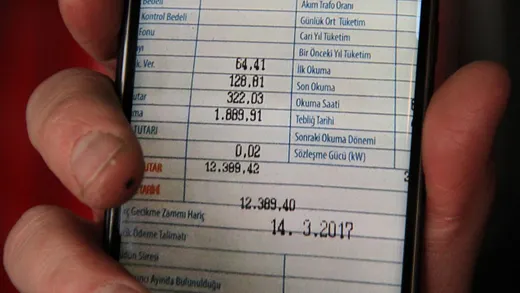 Bedeli Akım Trafo Oranı
Kontrol Bedeli Günlük Ort Tüketim
Fonu Cari Yıl Tüketim
Bir Önceki Yıl Tüketim
Ver. 64.41 İlk Okuma
128,81 Son Okuma
322,03 Okuma Saati
1.889,91 Tebliğ Tarihi
TUTARI Sonraki Okuma Dönemi
0,02 Sözleşme Gücü (kW)
12.389,42
12.389,40
Gecikme Zammı Hariç
14. 3.2017
Ödeme Talimatı
Süresi
Ayında Bulunulduğu